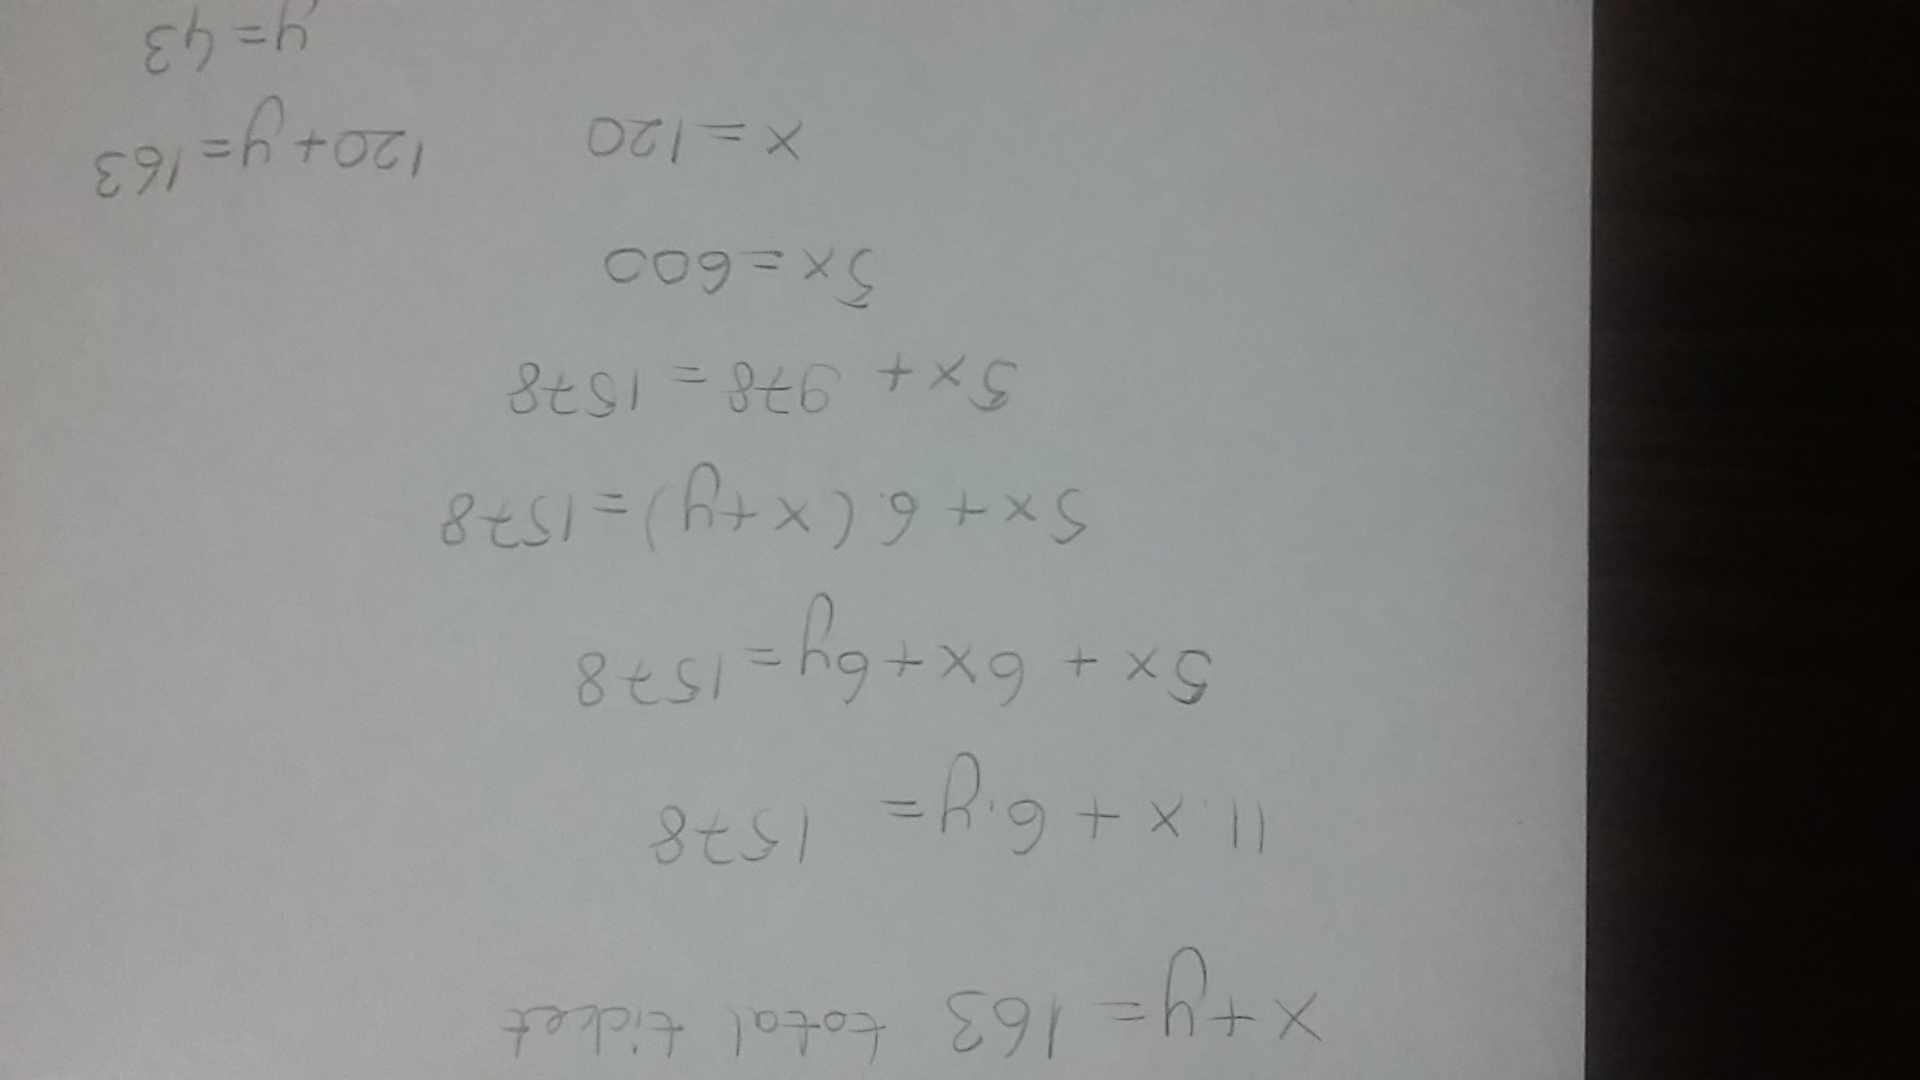 x+y=163 total ticket
11.x + 6.y= 1578
5x + 6x+6y=1578
5x+6.(x+y)=1578
5x+ 978 = 1578
5x=600
x=120
120+y=163
y=43